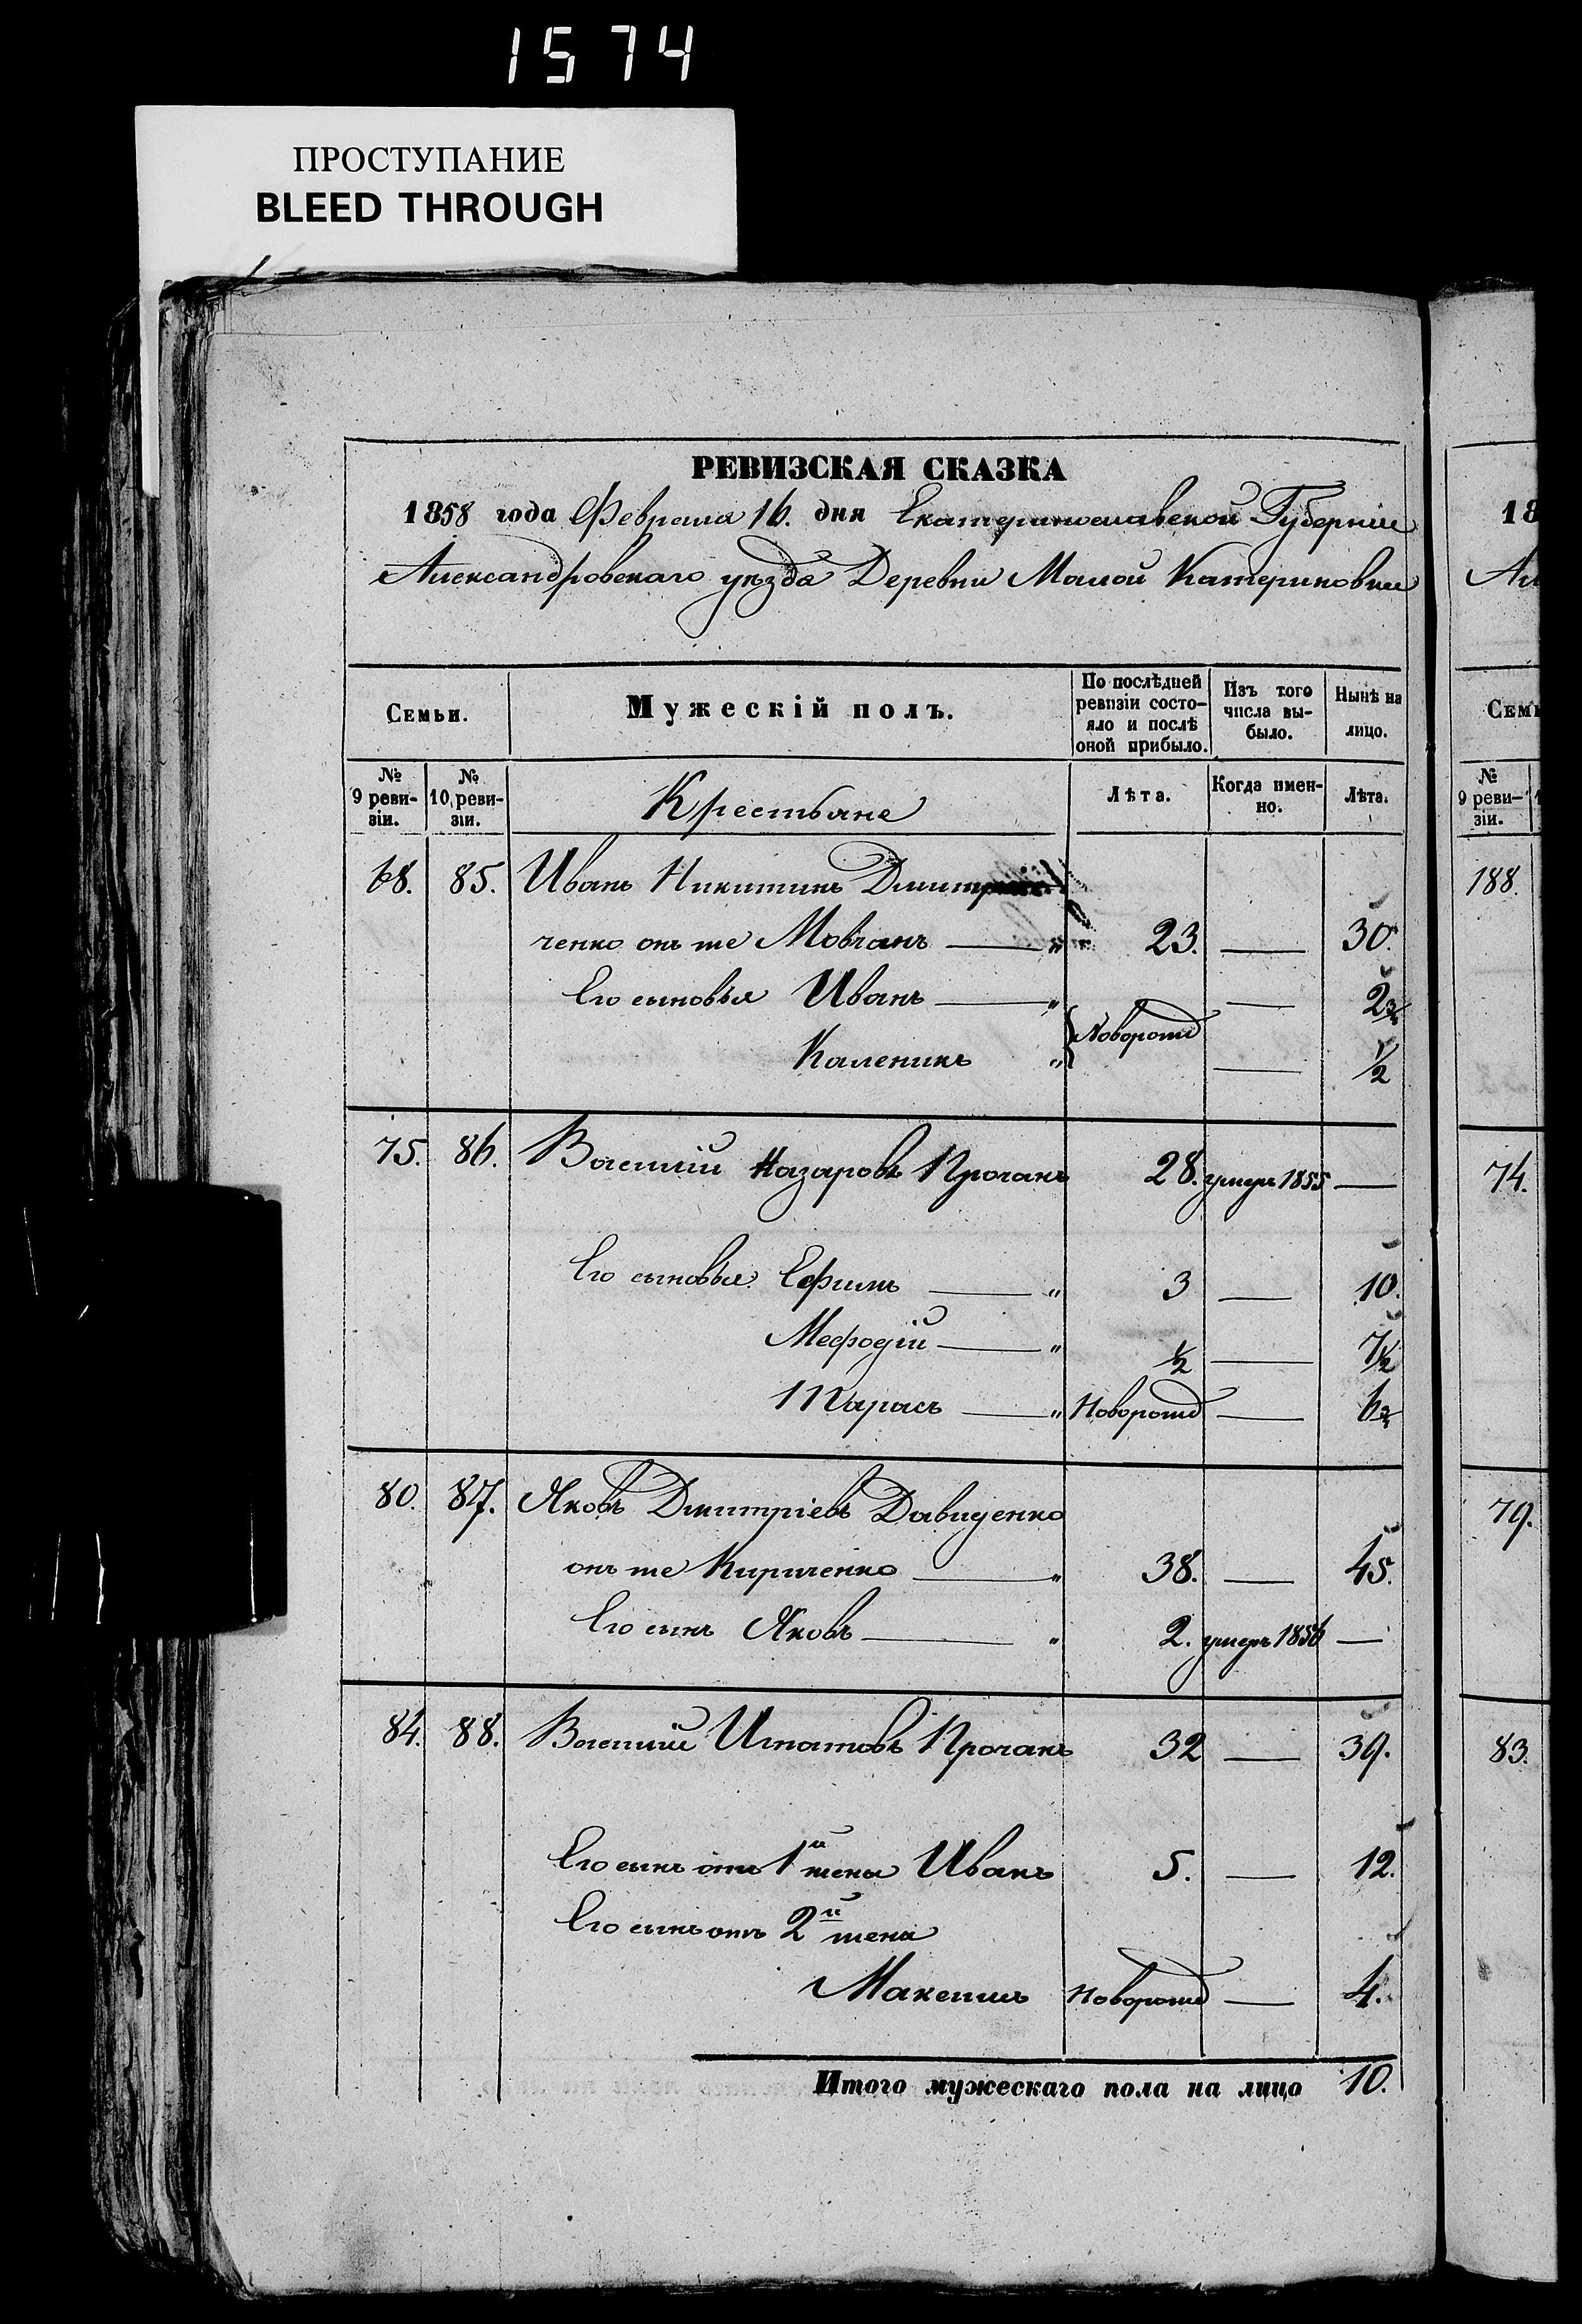 1574
ПРОСТУПАНИЕ
BLEED THROUGH
РЕВИЗСКАЯ СКАЗКА
1858 года Февраля 16. дня Екатеринославской Губерніи
Александровскаго уѣзда Деревни Малой Катериновки
Семьи. Мужескій полъ. По послѣдней ревизіи состояло и послѣ оной прибыло. Изъ того числа выбыло. Нынѣ на лицо.
№ 9 ревизіи. № 10 ревизіи. Крестьяне Лѣта. Когда именно. Лѣта.
68. 85. Иванъ Никитинъ Дмитри
ченко онъ же Мовчанъ — " 23. — 30.
Его сыновья Иванъ — " — 2¾
Новорожд
Каленикъ " — ½
75. 86. Василій Назаровъ Прочанъ 28. умеръ 1855 —
Его сыновья Ефимъ — " 3 — 10.
Мефодій — " ½ — 7½
Тарасъ — " Новорожд —
80. 87. Яковъ Дмитріевъ Давиденко
онъ же Кириченко — " 38. — 45.
Его сынъ Яковъ — " 2. умеръ 1856 —
84. 88. Василій Игнатовъ Прочанъ 32 — 39.
Его сынъ отъ 1й жены Иванъ 5. — 12.
Его сынъ отъ 2й жены
Максимъ Новорожд — 4.
Итого мужескаго пола на лицо 10.
18
Ал
Семь
№ 9 ревизіи.
188.
74.
79.
83.